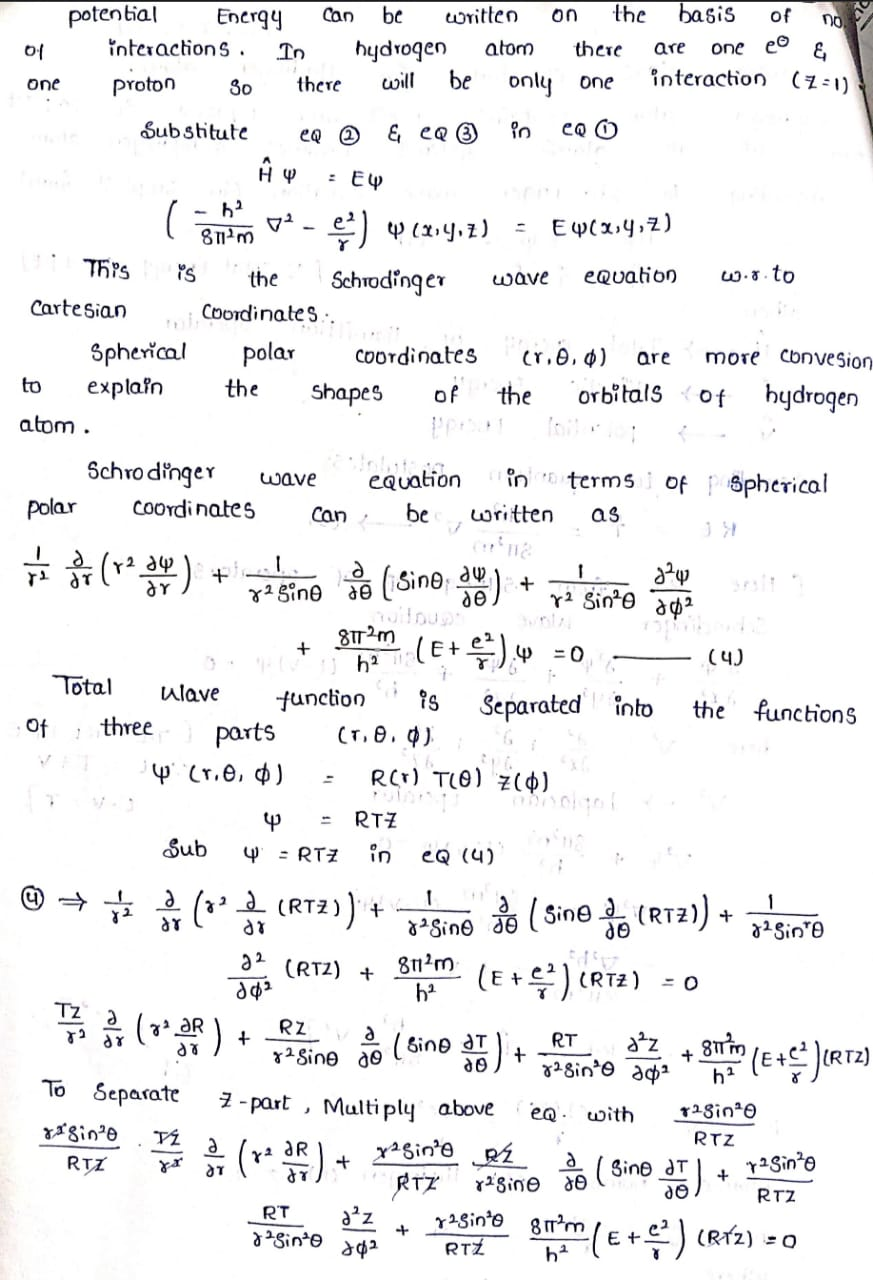 potential Energy can be written on the basis of no.
of interactions. In hydrogen atom there are one e⊖ &
one proton so there will be only one interaction (Z=1)
Substitute eq ② & eq ③ in eq ①
Ĥ ψ = Eψ
( -h²/8π²m ∇² - e²/r ) ψ(x,y,z) = Eψ(x,y,z)
This is the Schrodinger wave equation w.r.to
Cartesian Coordinates.
Spherical polar coordinates (r,θ,ϕ) are more convesion
to explain the shapes of the orbitals of hydrogen
atom.
Schrodinger wave equation in terms of Spherical
polar coordinates can be written as
1/r² ∂/∂r (r² ∂ψ/∂r) + 1/r² Sinθ ∂/∂θ (Sinθ ∂ψ/∂θ) + 1/r² Sin²θ ∂²ψ/∂ϕ²
+ 8π²m/h² (E + e²/r) ψ = 0 —— (4)
Total wave function is separated into the functions
of three parts (r,θ,ϕ)
ψ (r,θ,ϕ) = R(r) T(θ) Z(ϕ)
ψ = RTZ
Sub ψ = RTZ in eq (4)
④ ⇒ 1/r² ∂/∂r (r² ∂/∂r (RTZ)) + 1/r²Sinθ ∂/∂θ (Sinθ ∂/∂θ (RTZ)) + 1/r²Sin²θ
∂²/∂ϕ² (RTZ) + 8π²m/h² (E + e²/r) (RTZ) = 0
TZ/r² ∂/∂r (r² ∂R/∂r) + RZ/r²Sinθ ∂/∂θ (Sinθ ∂T/∂θ) + RT/r²Sin²θ ∂²Z/∂ϕ² + 8π²m/h² (E + e²/r)(RTZ)
To Separate Z-part, Multiply above eq. with r²Sin²θ/RTZ
r²Sin²θ/RTZ . TZ/r² ∂/∂r (r² ∂R/∂r) + r²Sin²θ/RTZ RZ/r²Sinθ ∂/∂θ (Sinθ ∂T/∂θ) + r²Sin²θ/RTZ
RT/r²Sin²θ ∂²Z/∂ϕ² + r²Sin²θ/RTZ 8π²m/h² (E + e²/r) (RTZ) = 0